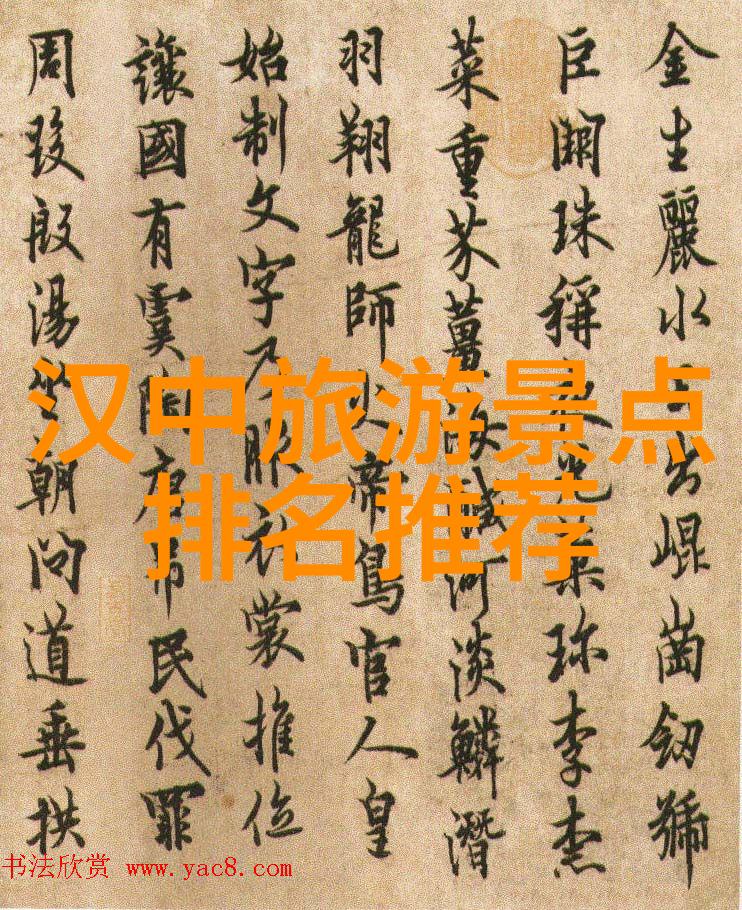 金生麗水玉出崐崗劒號
巨闕珠稱夜光菓珎李柰
菜重芥薑海醎河淡鱗潛
羽翔龍師火帝鳥官人皇
始制文字乃服衣裳推位
讓國有虞陶唐弔民伐罪
周發殷湯坐朝問道垂拱
汉中旅游景点
排名推荐
书法欣赏 www.yac8.com